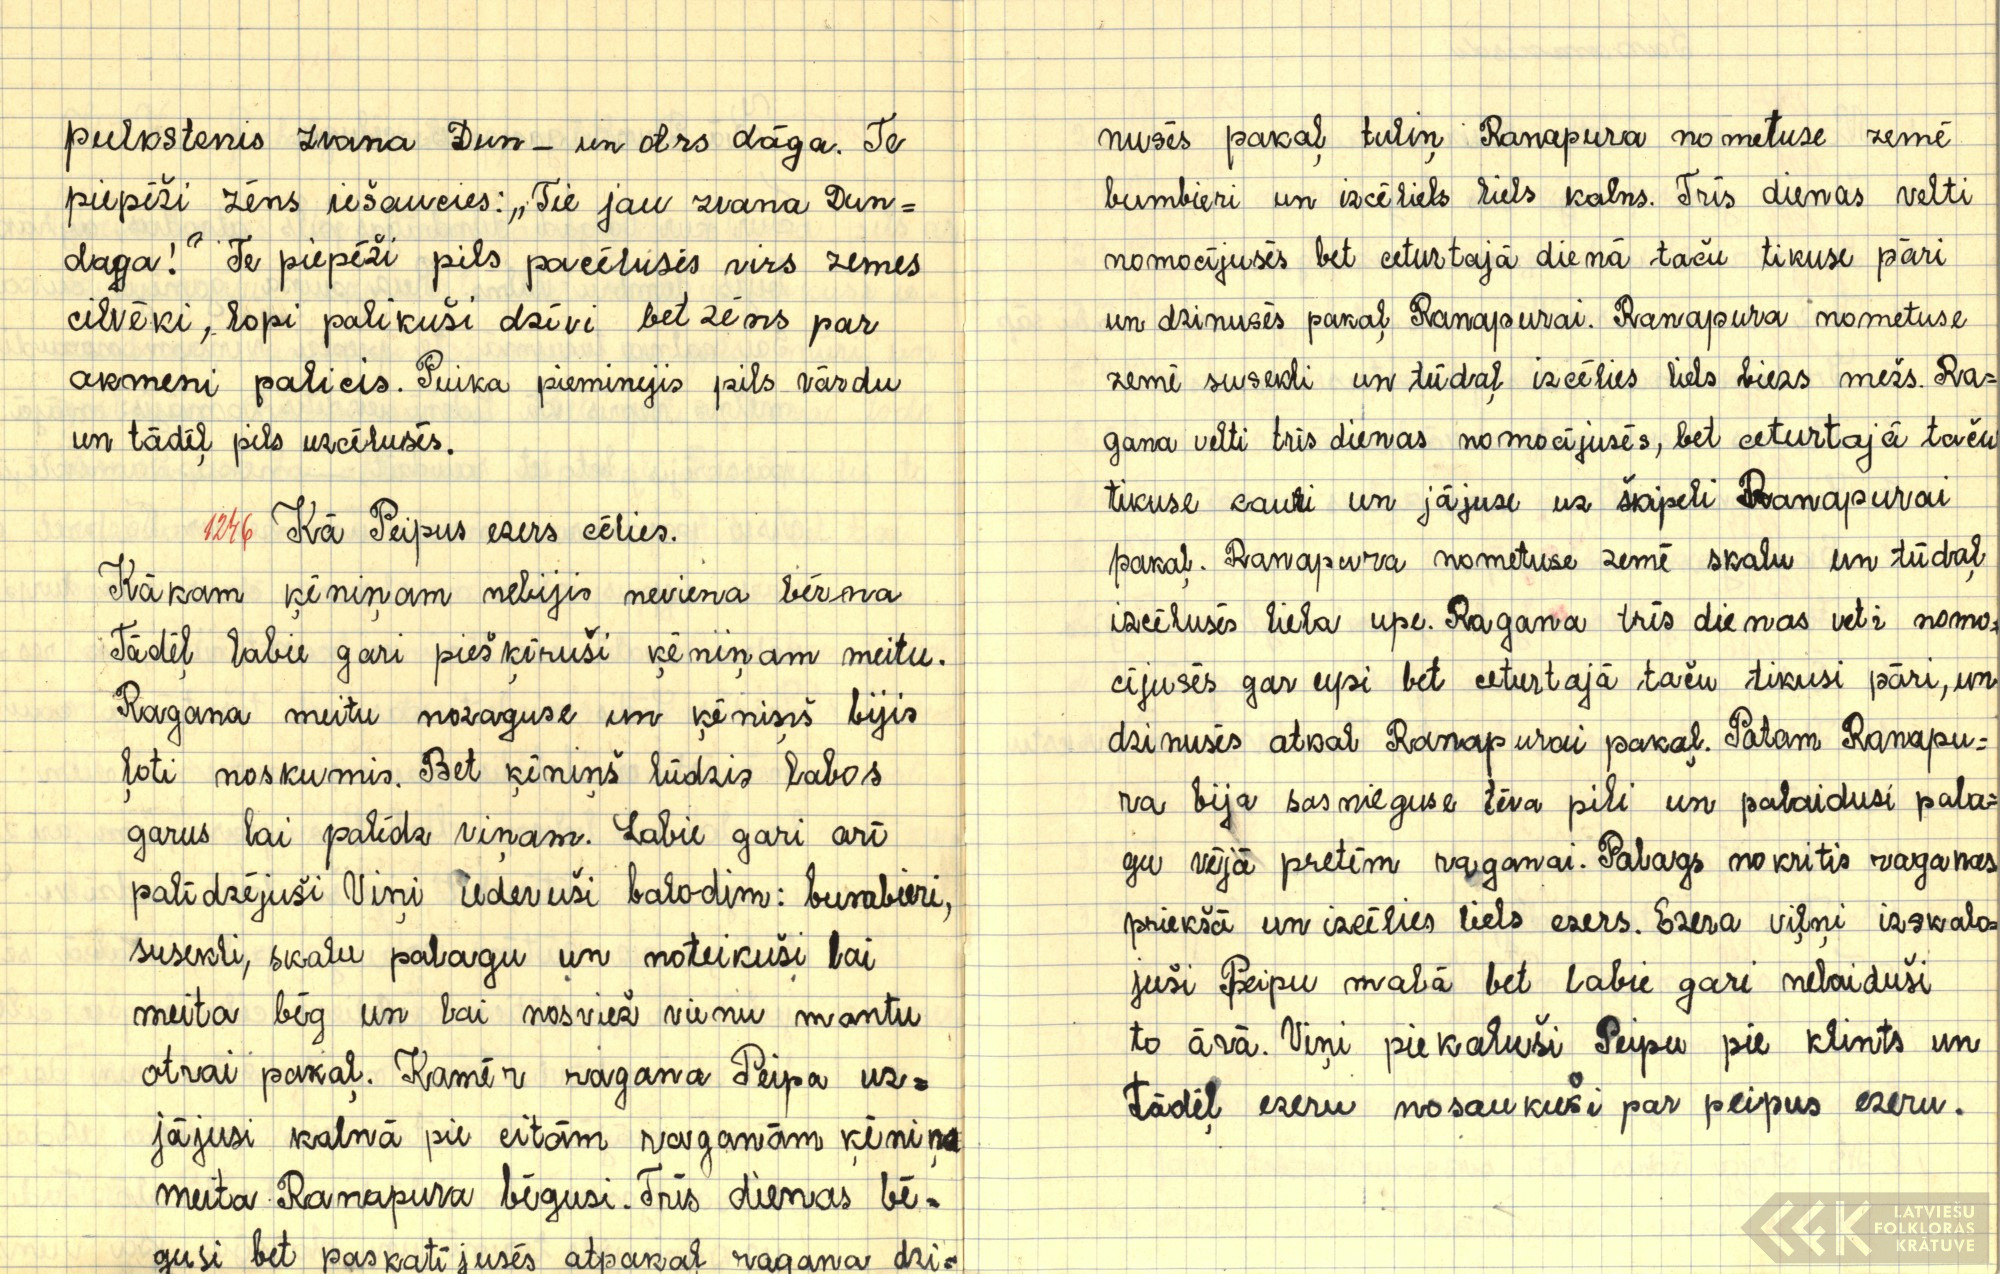 pulkstenis zvana Dun- un otrs dāga. Te
piepēži zēns iešaucies: „Tie jau zvana Dun=
daga!" Te piepēži pils pacēlusēs virs zemes
cilvēki, lopi palikuši dzīvi bet zēns par
akmeni palicis. Puika pieminejis pils vārdu
un tādēļ pils uzcēlusēs.
1246 Kā Peipus ezers cēlies.
Kākam ķēniņam nebijis neviena bērna
Tādēļ labie gari piešķīruši ķēniņam meitu.
Ragana meitu nozaguse un ķēniņš bijis
ļoti noskumis. Bet ķēniņš lūdzis labos
garus lai palīdz viņam. Labie gari arī
palīdzējuši Viņi iedevuši balodim: bumbieri,
susekli, skalu palagu un noteikuši lai
meita bēg un lai nosviež vienu mantu
otrai pakaļ. Kamēr ragana Peipa uz=
jājusi kalnā pie citām raganām ķēniņa
meita Ranapura bēgusi. Trīs dienas bē=
gusi bet paskatījusēs atpakaļ ragana dzi=
nusēs pakaļ tuliņ Ranapura nometuse zemē
bumbieri un izcēliels liels kalns. Trīs dienas velti
nomocījusēs bet ceturtajā dienā taču tikuse pāri
un dzinusēs pakaļ Ranapurai. Ranapura nometuse
zemē susekli un tūdaļ izcēlies liels biezs mežs. Ra=
gana velti trīs dienas nomocījusēs, bet ceturtajā taču
tikuse cauri un jājuse uz šķipeli Ranapurai
pakaļ. Ranapura nometuse zemē skalu un tūdaļ
izcēlusēs liela upe. Ragana trīs dienas veti nomo=
cījusēs gar upi bet ceturtajā taču tikusi pāri, un
dzinusēs atkal Ranapurai pakaļ. Patam Ranapu=
ra bija sasnieguse tēva pili un palaidusi pala=
gu vējā pretīm raganai. Palags nokritis raganas
priekšā un izcēlies liels ezers. Ezera viļņi izskalo=
juši Peipu malā bet labie gari nelaiduši
to ārā. Viņi piekaluši Peipu pie klints un
tādēļ ezeru nosaukuši par peipus ezeru.
LATVIEŠU
FOLKLORAS
KRĀTUVE